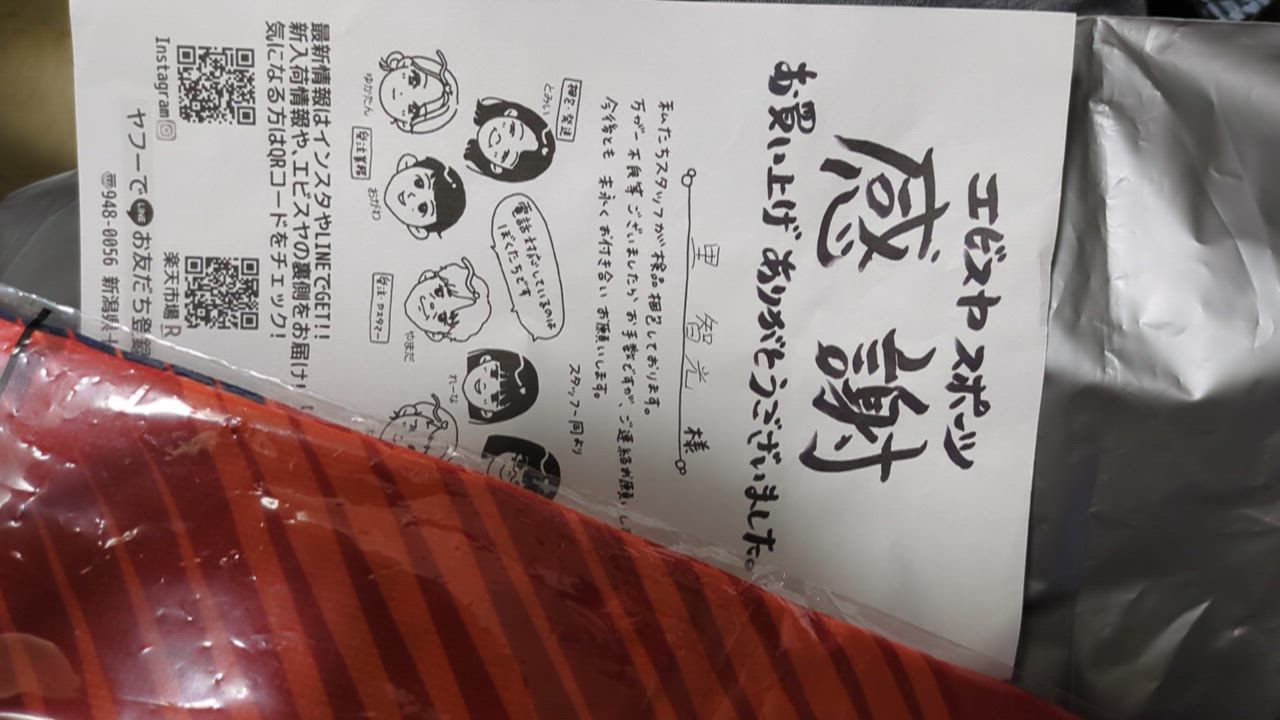 エビスヤスポーツ
感謝
お買い上げありがとうございました。
里 智光 様
私たちスタッフが検品梱包しております。
万が一不良等ございましたらお手数ですが、ご連絡お願いし
今後とも末永くお付き合いお願いします。
スタッフ一同より
梱包・発送
とみい
電話対応しているのは
ぼくたちです
ゆかたん
受注業務
おがわ
受注・カスタマー
やまだ
れーな
最新情報はインスタやLINEでGET!!
新入荷情報や、エビスヤの裏側をお届け
気になる方はQRコードをチェック!
Instagram
楽天市場 R
ヤフーで LINE お友だち登録
〒948-0056 新潟県十